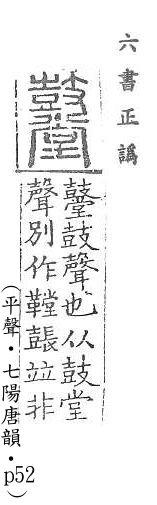 六書正譌
鼞
鼞鼓聲也从鼓堂
聲別作鞺竝非
（平聲・七陽唐韻・p52）